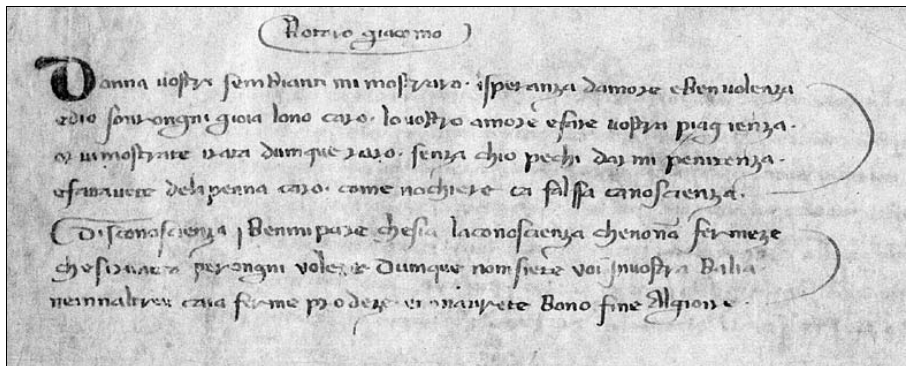 Notaro giacomo
Donna vostri sembianti mi mostraro · isperanza damore eben volenza
edio sovrongni gioia lono caro · lo vostro amore efare vostra piagienza ·
or vi mostrate irata dumque raro · senza chio pechi darmi penitenza ·
efatavete dela penna caro · come nochiere ca falssa canoscienza ·
Disconoscienza benmi pare chesia laconoscienza chenona fermeze
chesirimuta perongni volere · dumque nonsiete voi Invostra balia ·
neinnaltrui caia ferme prodeze · avrete bono fine Algioire ·